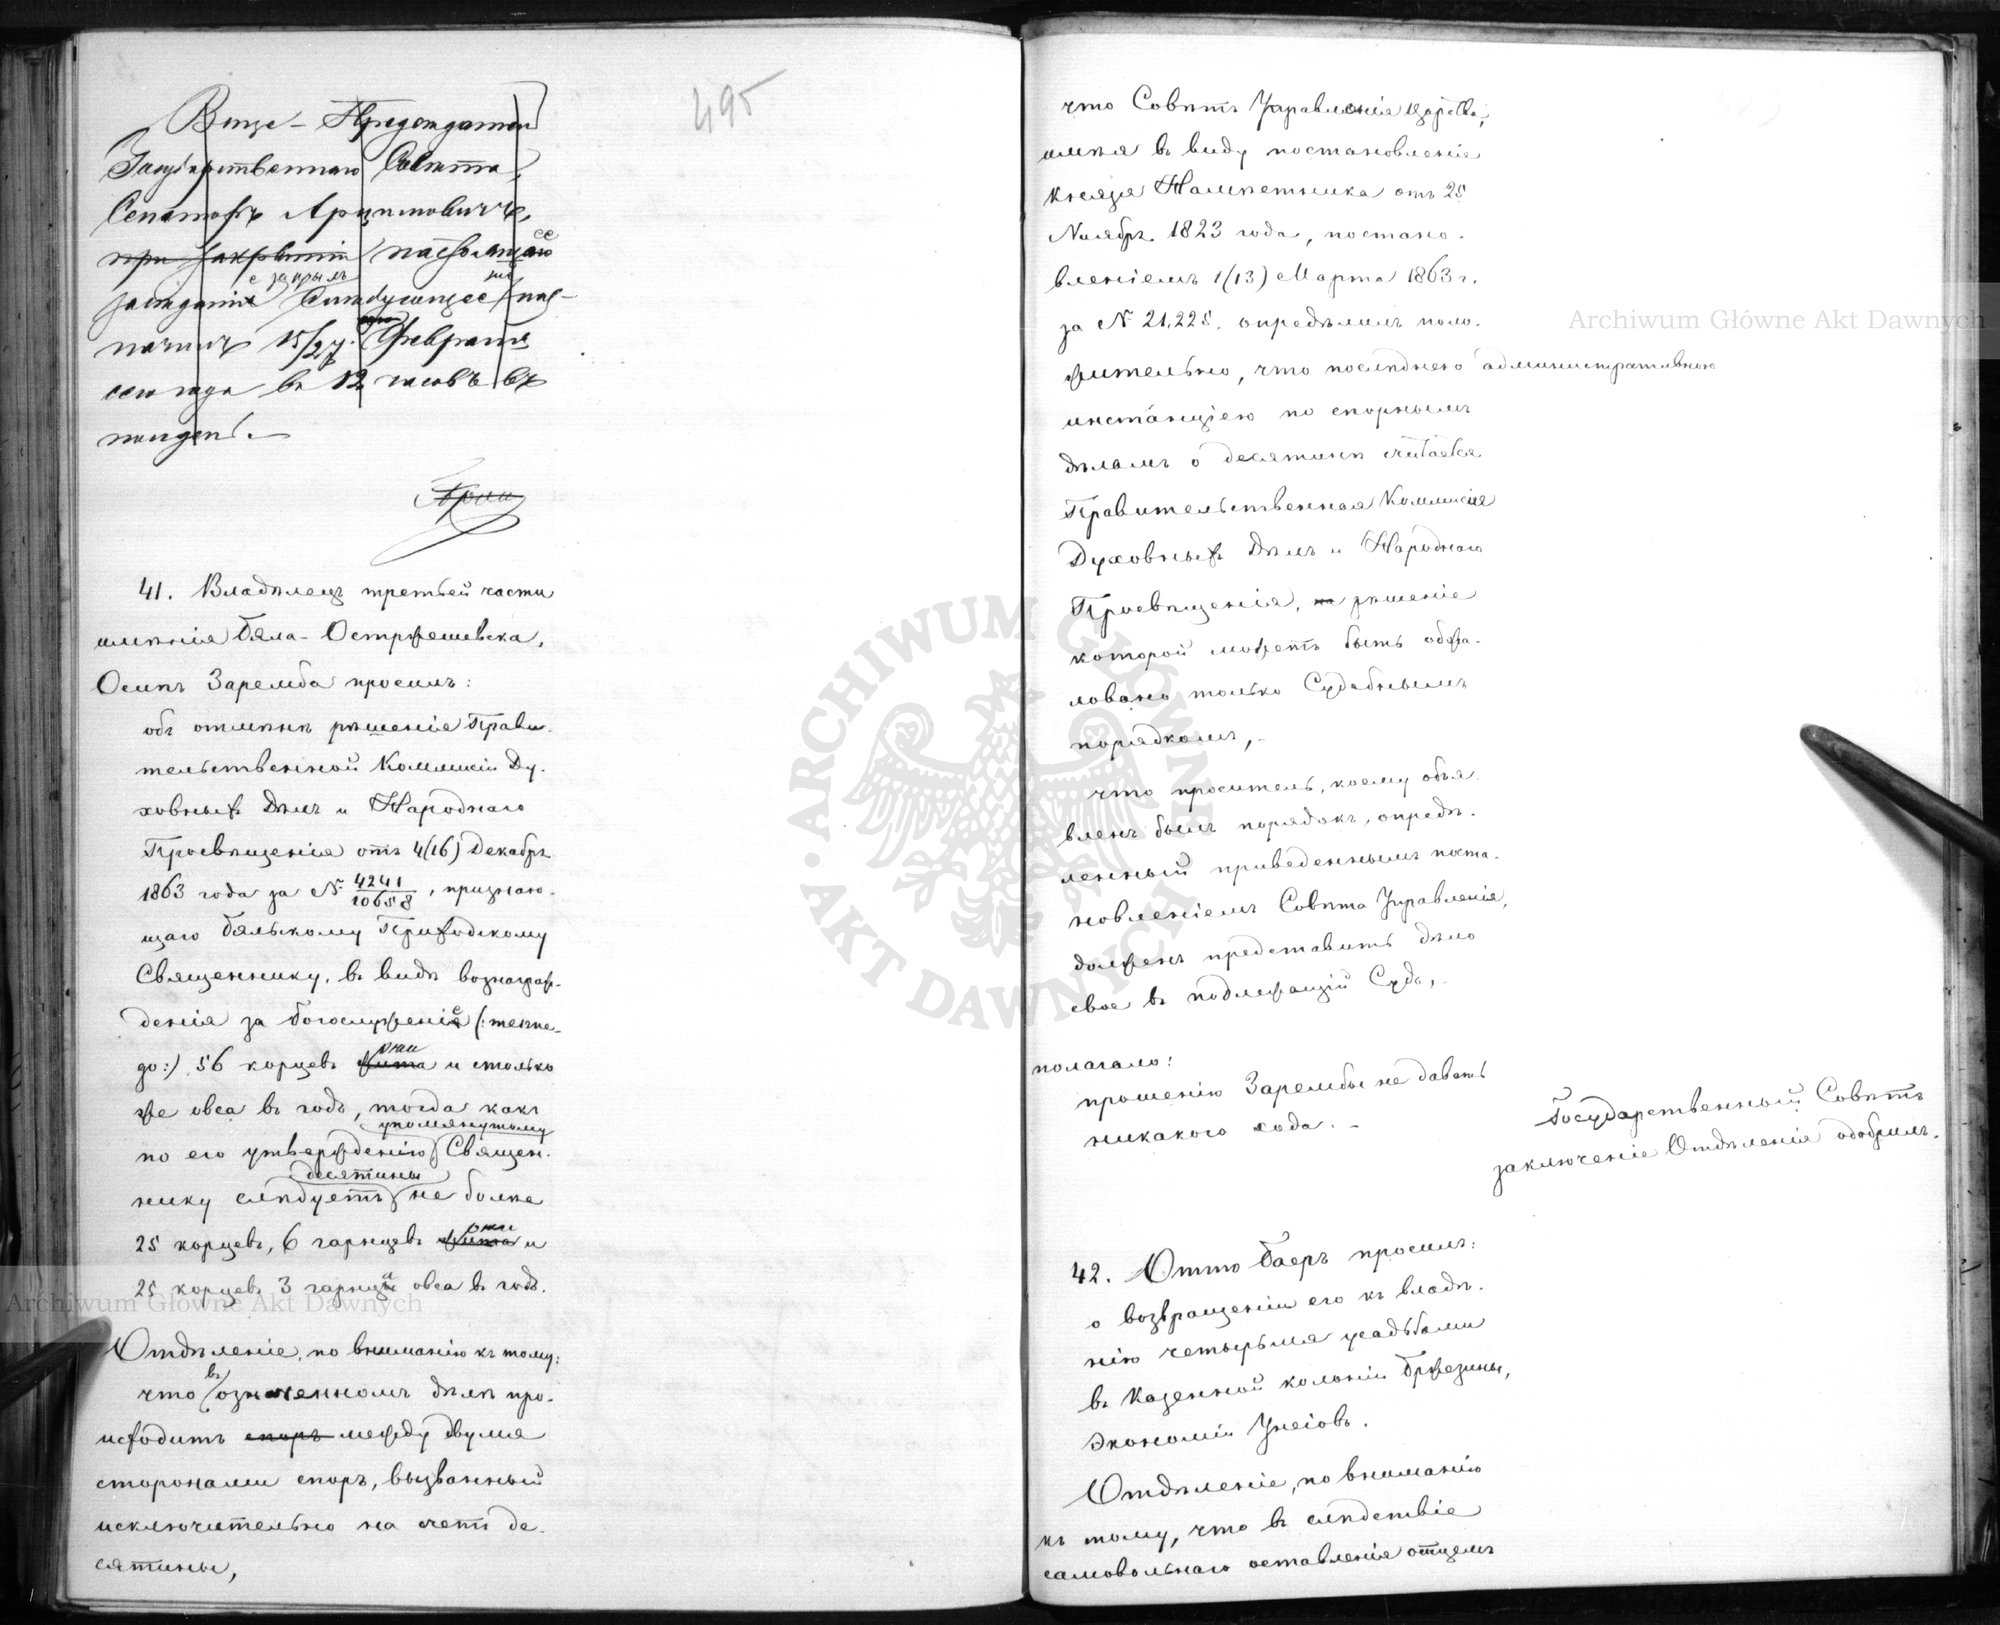 495
Вице-Предсѣдатель
Государственнаго Совѣта,
Сенаторъ Арцимовичъ,
при закрытіи настоящаго
ее
е закрылъ
засѣданіе Слѣдующее наз-
начилъ 15/27 Февраля
сего года въ 12 часовъ въ
полдень.—
41. Владѣлецъ третьей части
имѣнія Бяла-Остржешевска,
Осипъ Заремба просилъ:
объ отмѣнѣ рѣшенія Прави-
тельственной Коммисіи Ду-
ховныхъ Дѣлъ и Народнаго
Просвѣщенія отъ 4(16) Декабря
1863 года за № 4241/10658, признаю-
щаго Бяльскому Приходскому
Священнику, въ видѣ вознаграж-
денія за богослуженіе (:меше-
до:) 56 корцевъ жита и столько
ржи
же овса въ годъ, тогда какъ
упомянутому
по его утвержденію Священ-
десятины
нику слѣдуетъ не болѣе
ржи
25 корцевъ, 6 гарнцевъ жита и
25 корцевъ 3 гарнца овса въ годъ.
Отдѣленіе, по вниманію къ тому:
въ
что означенномъ дѣлѣ про-
исходитъ споръ между двумя
сторонами споръ, вызванный
исключительно на счетъ де-
сятины,
что Совѣтъ Управленія Царства,
имѣя въ виду постановленіе
Князя Намѣстника отъ 25
Ноября 1823 года, постано-
вленіемъ 1(13) Марта 1863 г.
за № 21,225, опредѣлилъ поло-
жительно, что послѣднею административною
инстанціею по спорнымъ
дѣламъ о десятинѣ считается
Правительственная Коммисія
Духовныхъ Дѣлъ и Народнаго
Просвѣщенія, на рѣшеніе
которой можетъ быть обжа-
ловано только Судебнымъ
порядкомъ,-
что проситель, коему объя-
вленъ былъ порядокъ, опредѣ-
ленный приведеннымъ поста-
новленіемъ Совѣта Управленія,
долженъ представить дѣло
свое въ подлежащій Судъ,-
полагало:
прошенію Зарембы не давать
никакого хода.-
Государственный Совѣтъ
заключеніе Отдѣленія одобрилъ.
42. Отто Баеръ просилъ:
о возвращеніи его къ владѣ-
нію четырьмя усадьбами
въ Казенной колоніи Бржезины,
Экономіи Унеіовъ.
Отдѣленіе, по вниманію
къ тому, что въ слѣдствіе
самовольнаго оставленія отцемъ
Archiwum Główne Akt Dawnych
Archiwum Główne Akt Dawnych
ARCHIWUM GŁÓWNE AKT DAWNYCH